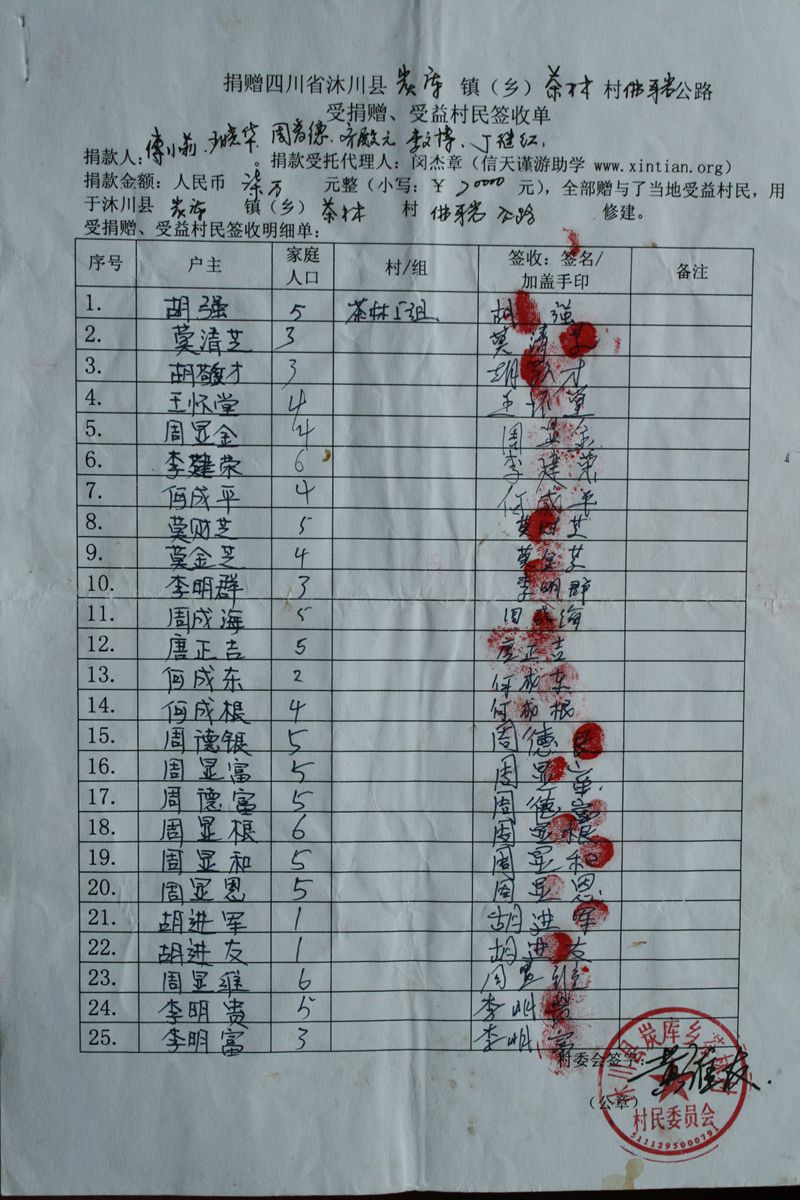 捐赠四川省沐川县 炭库 镇（乡）茶林 村 公路
受捐赠、受益村民签收单
捐款人：傅小莉、 华、周 德、 丁建红
。捐款受托代理人：闵杰章（信天谨游助学 www.xintian.org）
捐款金额：人民币 柒万 元整（小写：￥70000 元），全部赠与了当地受益村民，用
于沐川县 炭库 镇（乡）茶林 村 公路 修建。
受捐赠、受益村民签收明细单：
序号 户主 家庭人口 村/组 签收：签名/加盖手印 备注
1. 胡强 5 茶林5组 胡强
2. 莫清芝 3 莫清芝
3. 胡敬才 3 胡敬才
4. 王怀堂 4 王怀堂
5. 周显金 4 周显金
6. 李建荣 6 李建荣
7. 何成平 4 何成平
8. 莫财芝 5 莫财芝
9. 莫金芝 4 莫金芝
10. 李明群 3 李明群
11. 周成海 5 周成海
12. 唐正吉 5 唐正吉
13. 何成东 2 何成东
14. 何成根 4 何成根
15. 周德银 5 周德
16. 周显富 5 周显富
17. 周德富 5 周德富
18. 周显根 6 周显根
19. 周显和 5 周显和
20. 周显恩 5 周显恩
21. 胡进军 1 胡进军
22. 胡进友 1 胡进友
23. 周显维 6 周显维
24. 李明贵 5 李明贵
25. 李明富 3 李明富
村委会签字：黄维友
（公章）
川县炭库乡
村民委员会
5111295000791